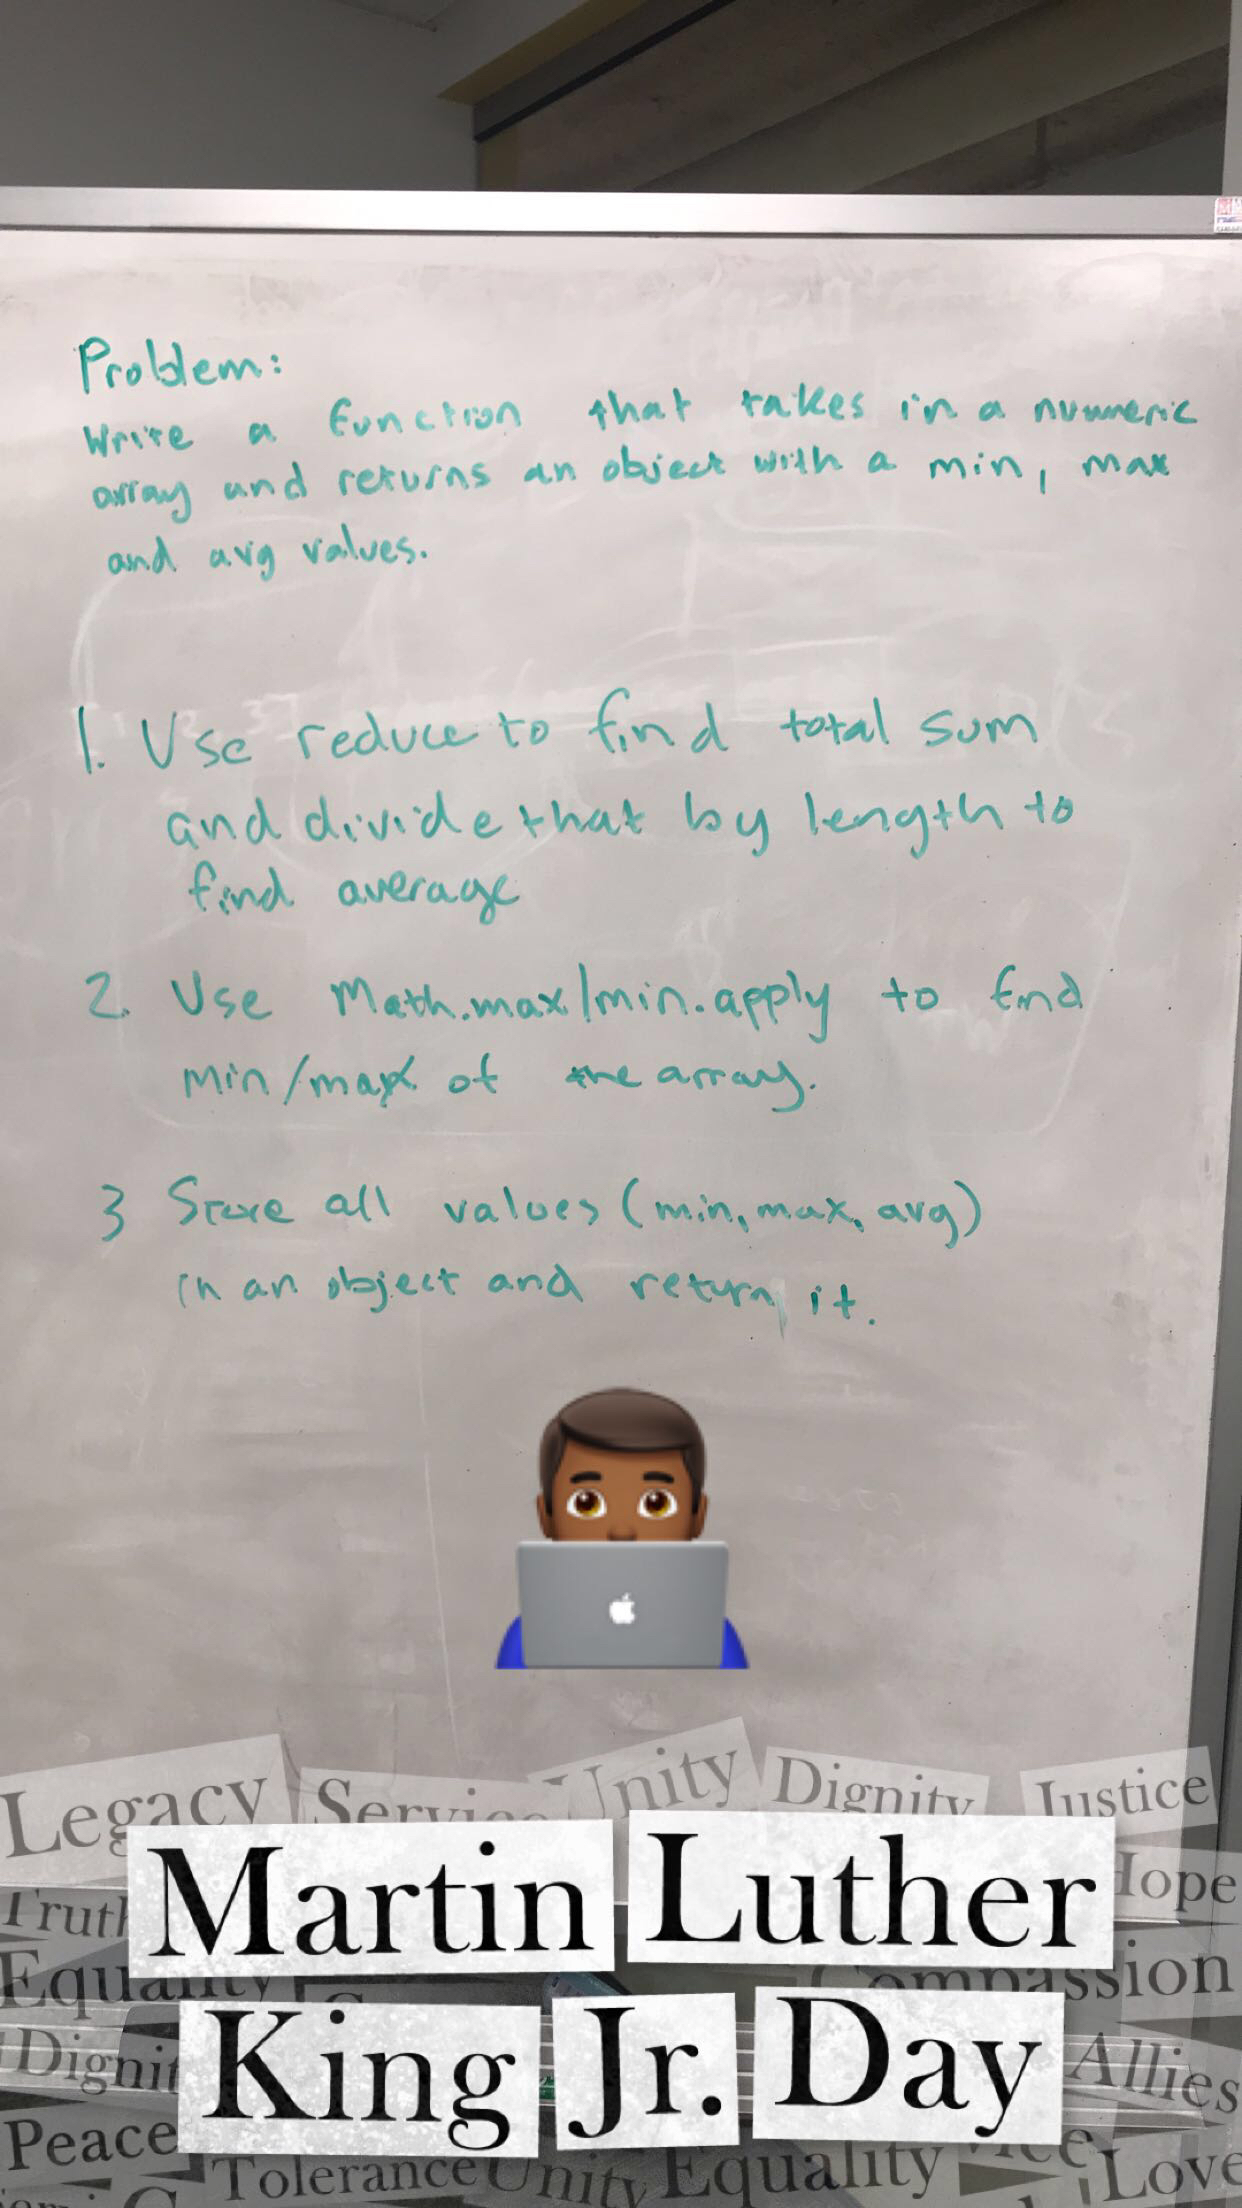 Problem:
Write a function that takes in a numeric
array and returns an object with a min, max
and avg values.
1. Use reduce to find total sum
and divide that by length to
find average
2. Use Math.max/min.apply to find
min/max of the array.
3 Store all values (min, max, avg)
in an object and return it.
Legacy Unity Dignity Justice
Martin Luther
King Jr. Day
Allies
Peace
Tolerance Unity Equality Love